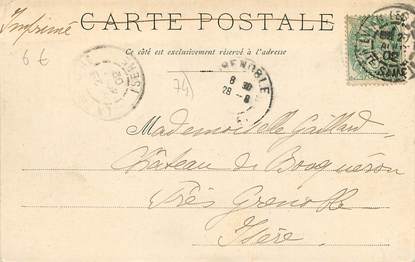 CARTE POSTALE
Imprimé
Ce côté est exclusivement réservé à l'adresse
6 €
74)
GRENOBLE
8 30
28 - 8
(ISERE)
02
Mademoiselle Gaillard
Château de Bocquéron
Près Grenoble
Isère